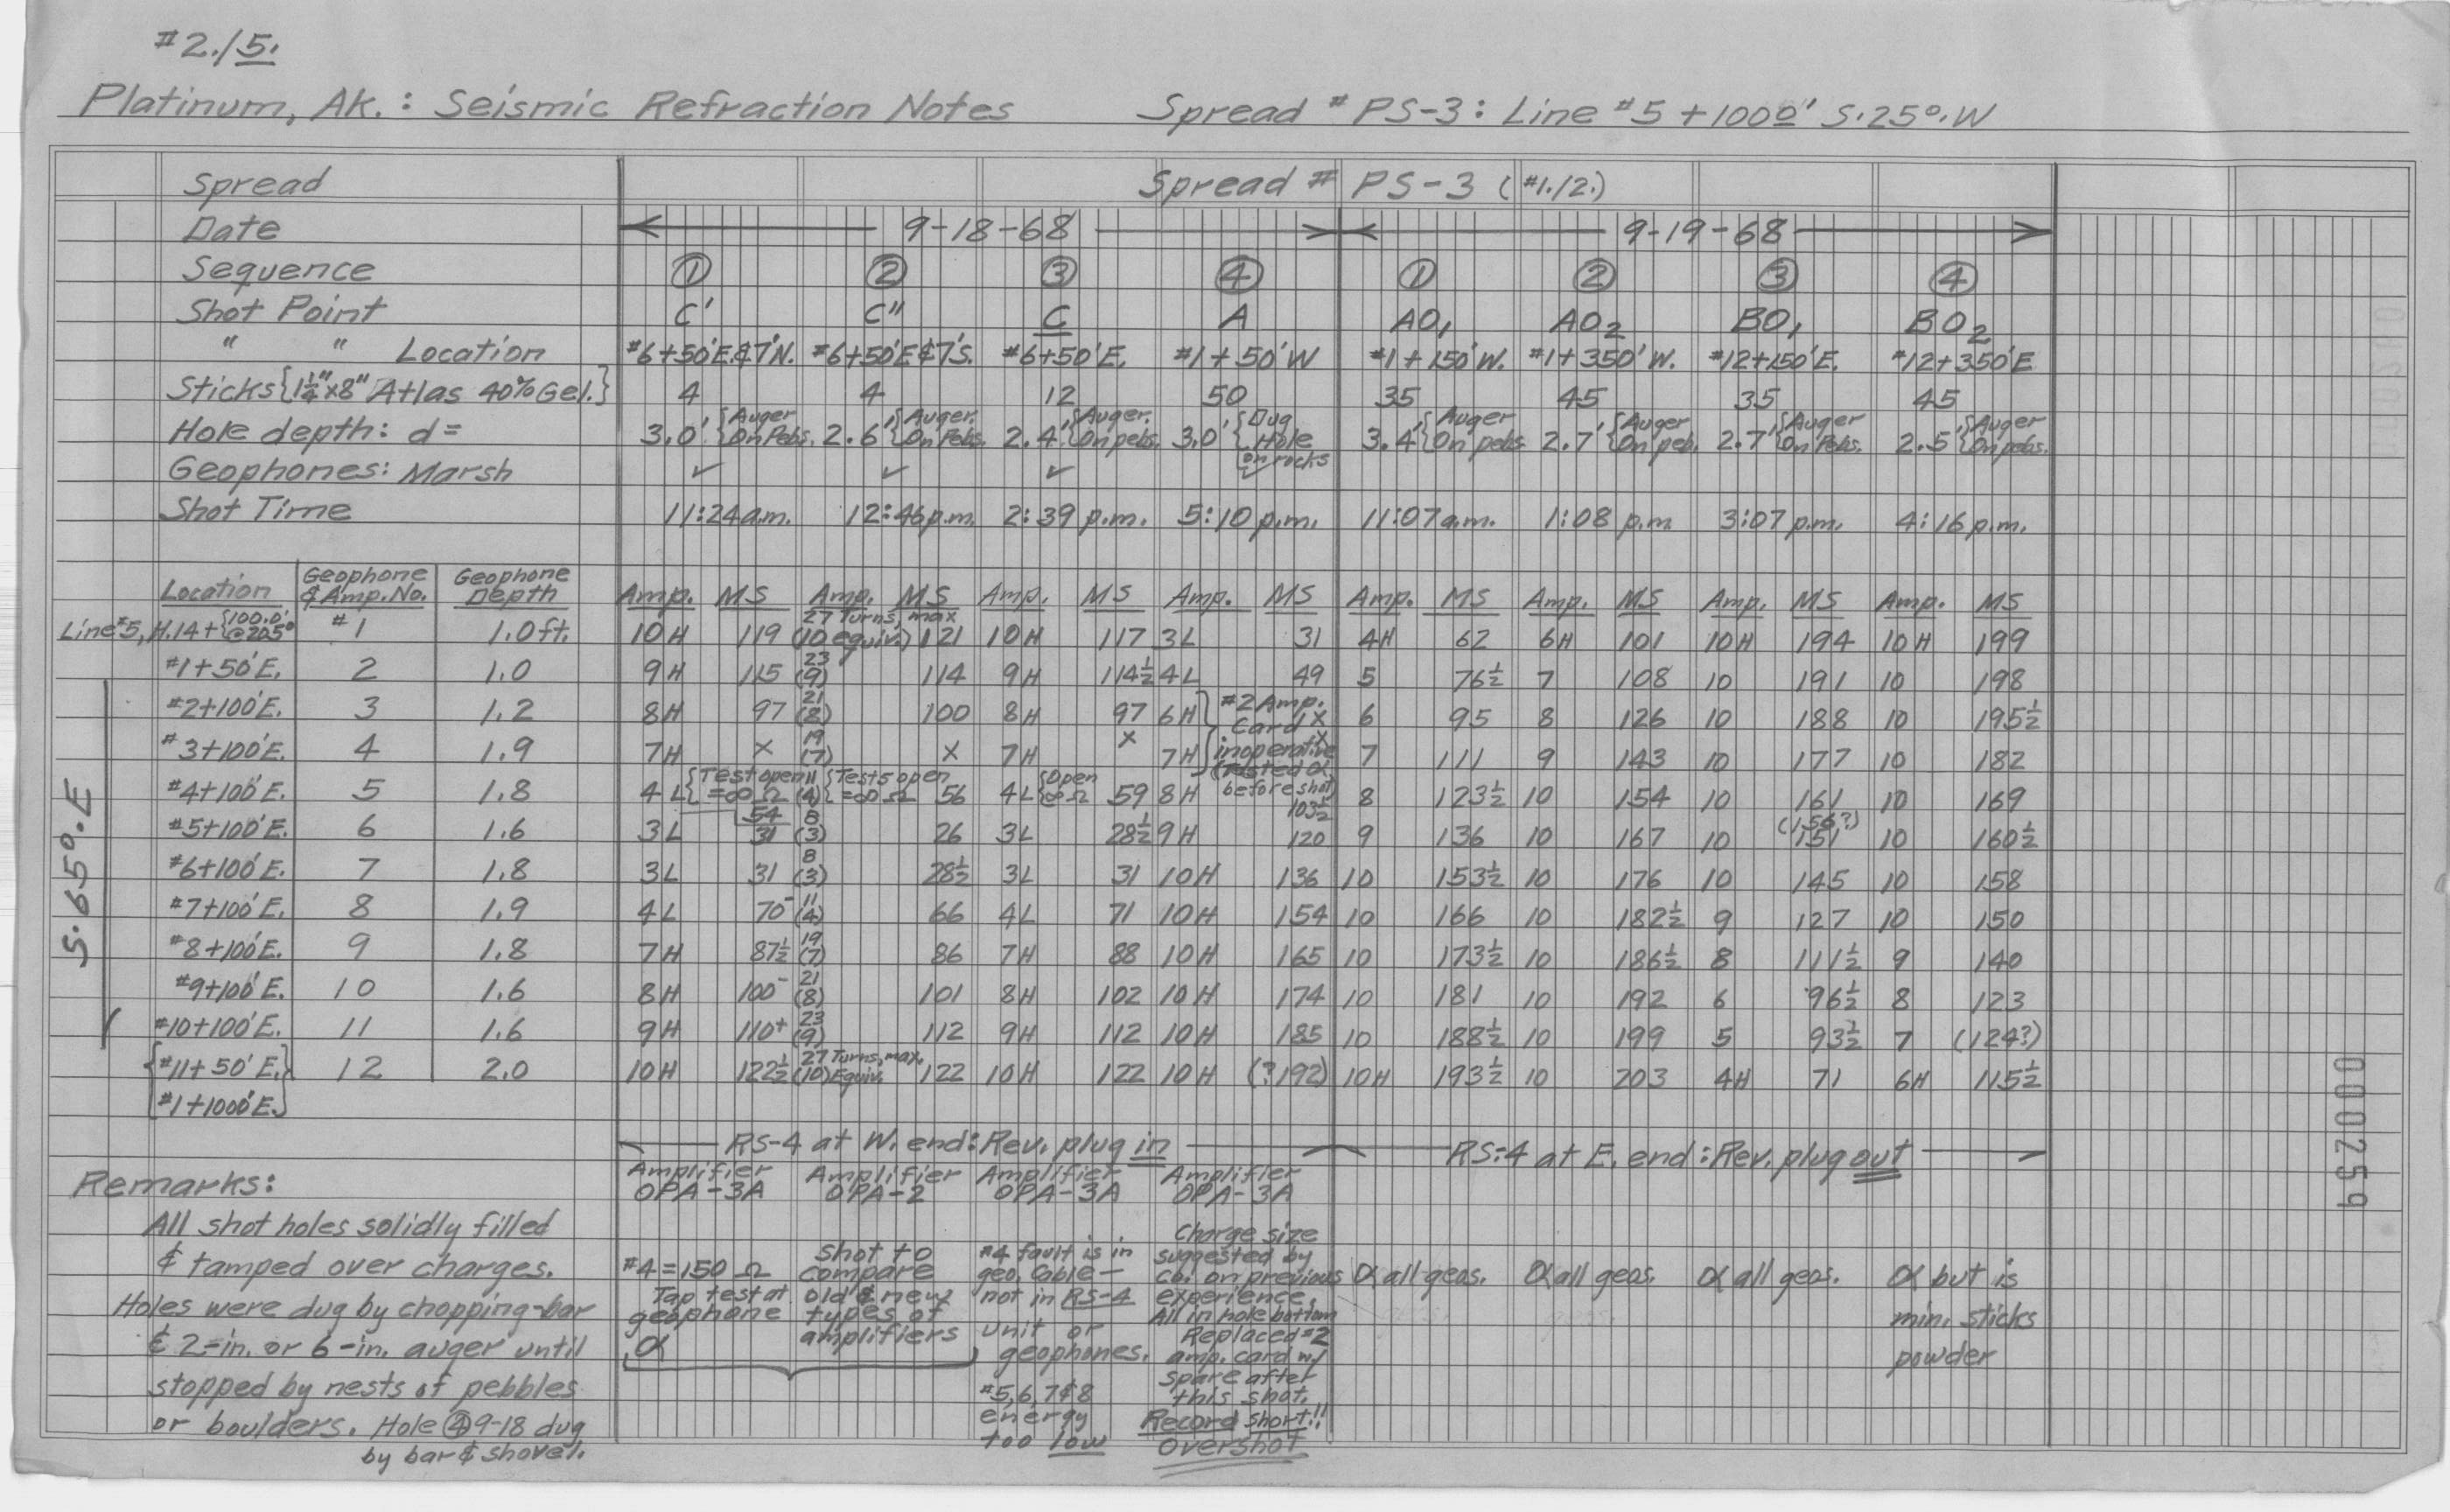 #2./5.
Platinum, Ak.: Seismic Refraction Notes Spread # PS-3: Line #5 +1000' S.25°.W
Spread Spread # PS-3 (#1./2.)
Date 9-18-68 9-19-68
Sequence ① ② ③ ④ ① ② ③ ④
Shot Point C' C" C A AO₁ AO₂ BO₁ BO₂
" " Location #6+50'E.&7'N. #6+50'E&7'S. #6+50'E. #1+50'W #1+150'W. #1+350'W. #12+150'E. #12+350'E
Sticks {1¼"x8" Atlas 40% Gel.} 4 4 12 50 35 45 35 45
Hole depth: d= 3.0' {Auger On Pebs. 2.6' {Auger. On Pebs. 2.4' {Auger. On pebs. 3.0' {Dug Hole on rocks 3.4' {Auger On pebs 2.7' {Auger On peb. 2.7' {Auger On Pebs. 2.5' {Auger On pebs.
Geophones: Marsh ✓ ✓ ✓ ✓
Shot Time 11:24 a.m. 12:46 p.m. 2:39 p.m. 5:10 p.m. 11:07 a.m. 1:08 p.m 3:07 p.m. 4:16 p.m.
Location Geophone & Amp. No. Geophone Depth Amp. MS Amp. MS Amp. MS Amp. MS Amp. MS Amp. MS Amp. MS Amp. MS
Line #5, H.14+ {100.0' @ 205° #1 1.0 ft. 10H 119 27 Turns, max (10 equiv.) 121 10H 117 3L 31 4H 62 6H 101 10H 194 10H 199
#1+50'E. 2 1.0 9H 115 23 (9) 114 9H 114½ 4L 49 5 76½ 7 108 10 191 10 198
#2+100'E. 3 1.2 8H 97 21 (8) 100 8H 97 6H } #2 Amp. Card X 6 95 8 126 10 188 10 195½
#3+100'E. 4 1.9 7H X 19 (7) X 7H X 7H inoperative X (tested α 7 111 9 143 10 177 10 182
#4+100'E. 5 1.8 4L {Test open =∞Ω 54 11 (4) {Test 5 open =∞Ω 56 4L {Open ∞Ω 59 8H before shot) 103½ 8 123½ 10 154 10 161 10 169
#5+100'E. 6 1.6 3L 31 8 (3) 26 3L 28½ 9H 120 9 136 10 167 10 (156?) 151 10 160½
#6+100'E. 7 1.8 3L 31 8 (3) 28½ 3L 31 10H 136 10 153½ 10 176 10 145 10 158
#7+100'E. 8 1.9 4L 70⁻ 11 (4) 66 4L 71 10H 154 10 166 10 182½ 9 127 10 150
#8+100'E. 9 1.8 7H 87½ 19 (7) 86 7H 88 10H 165 10 173½ 10 186½ 8 111½ 9 140
#9+100'E. 10 1.6 8H 100⁻ 21 (8) 101 8H 102 10H 174 10 181 10 192 6 96½ 8 123
#10+100'E. 11 1.6 9H 110⁺ 23 (9) 112 9H 112 10H 185 10 188½ 10 199 5 93½ 7 (124?)
{#11+50'E.} 12 2.0 10H 122½ 27 Turns, max. (10) Equiv. 122 10H 122 10H (?192) 10H 193½ 10 203 4H 71 6H 115½
#1+1000'E.
S. 65°. E
RS-4 at W. end: Rev. plug in RS-4 at E. end: Rev. plug out
Amplifier OPA-3A Amplifier OPA-2 Amplifier OPA-3A Amplifier OPA-3A
Remarks:
All shot holes solidly filled
& tamped over charges.
Holes were dug by chopping-bar
& 2-in. or 6-in. auger until
stopped by nests of pebbles
or boulders. Hole ④ 9-18 dug
by bar & shovel.
#4=150 Ω
Tap test at
geophone
α
Shot to
compare
old & new
types of
amplifiers
#4 fault is in
geo. Cable—
not in RS-4
unit or
geophones.
#5, 6, 7 & 8
energy
too low
Charge size
suggested by
co. on previous
experience.
All in hole bottom
Replaced #2
amp. card w/
spare after
this shot.
Record short!!
Overshot
α all geos. α all geos. α all geos. α but is
min. sticks
powder
000259